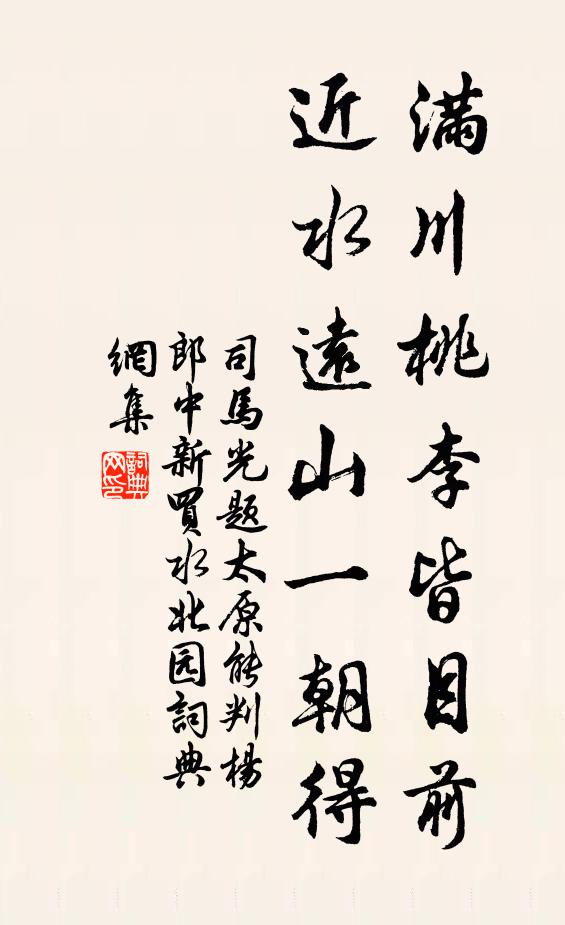 滿川桃李皆目前
近水遠山一朝得
司馬光题太原能判楊
郎中新買水北园詞典
網集
詞典
网印